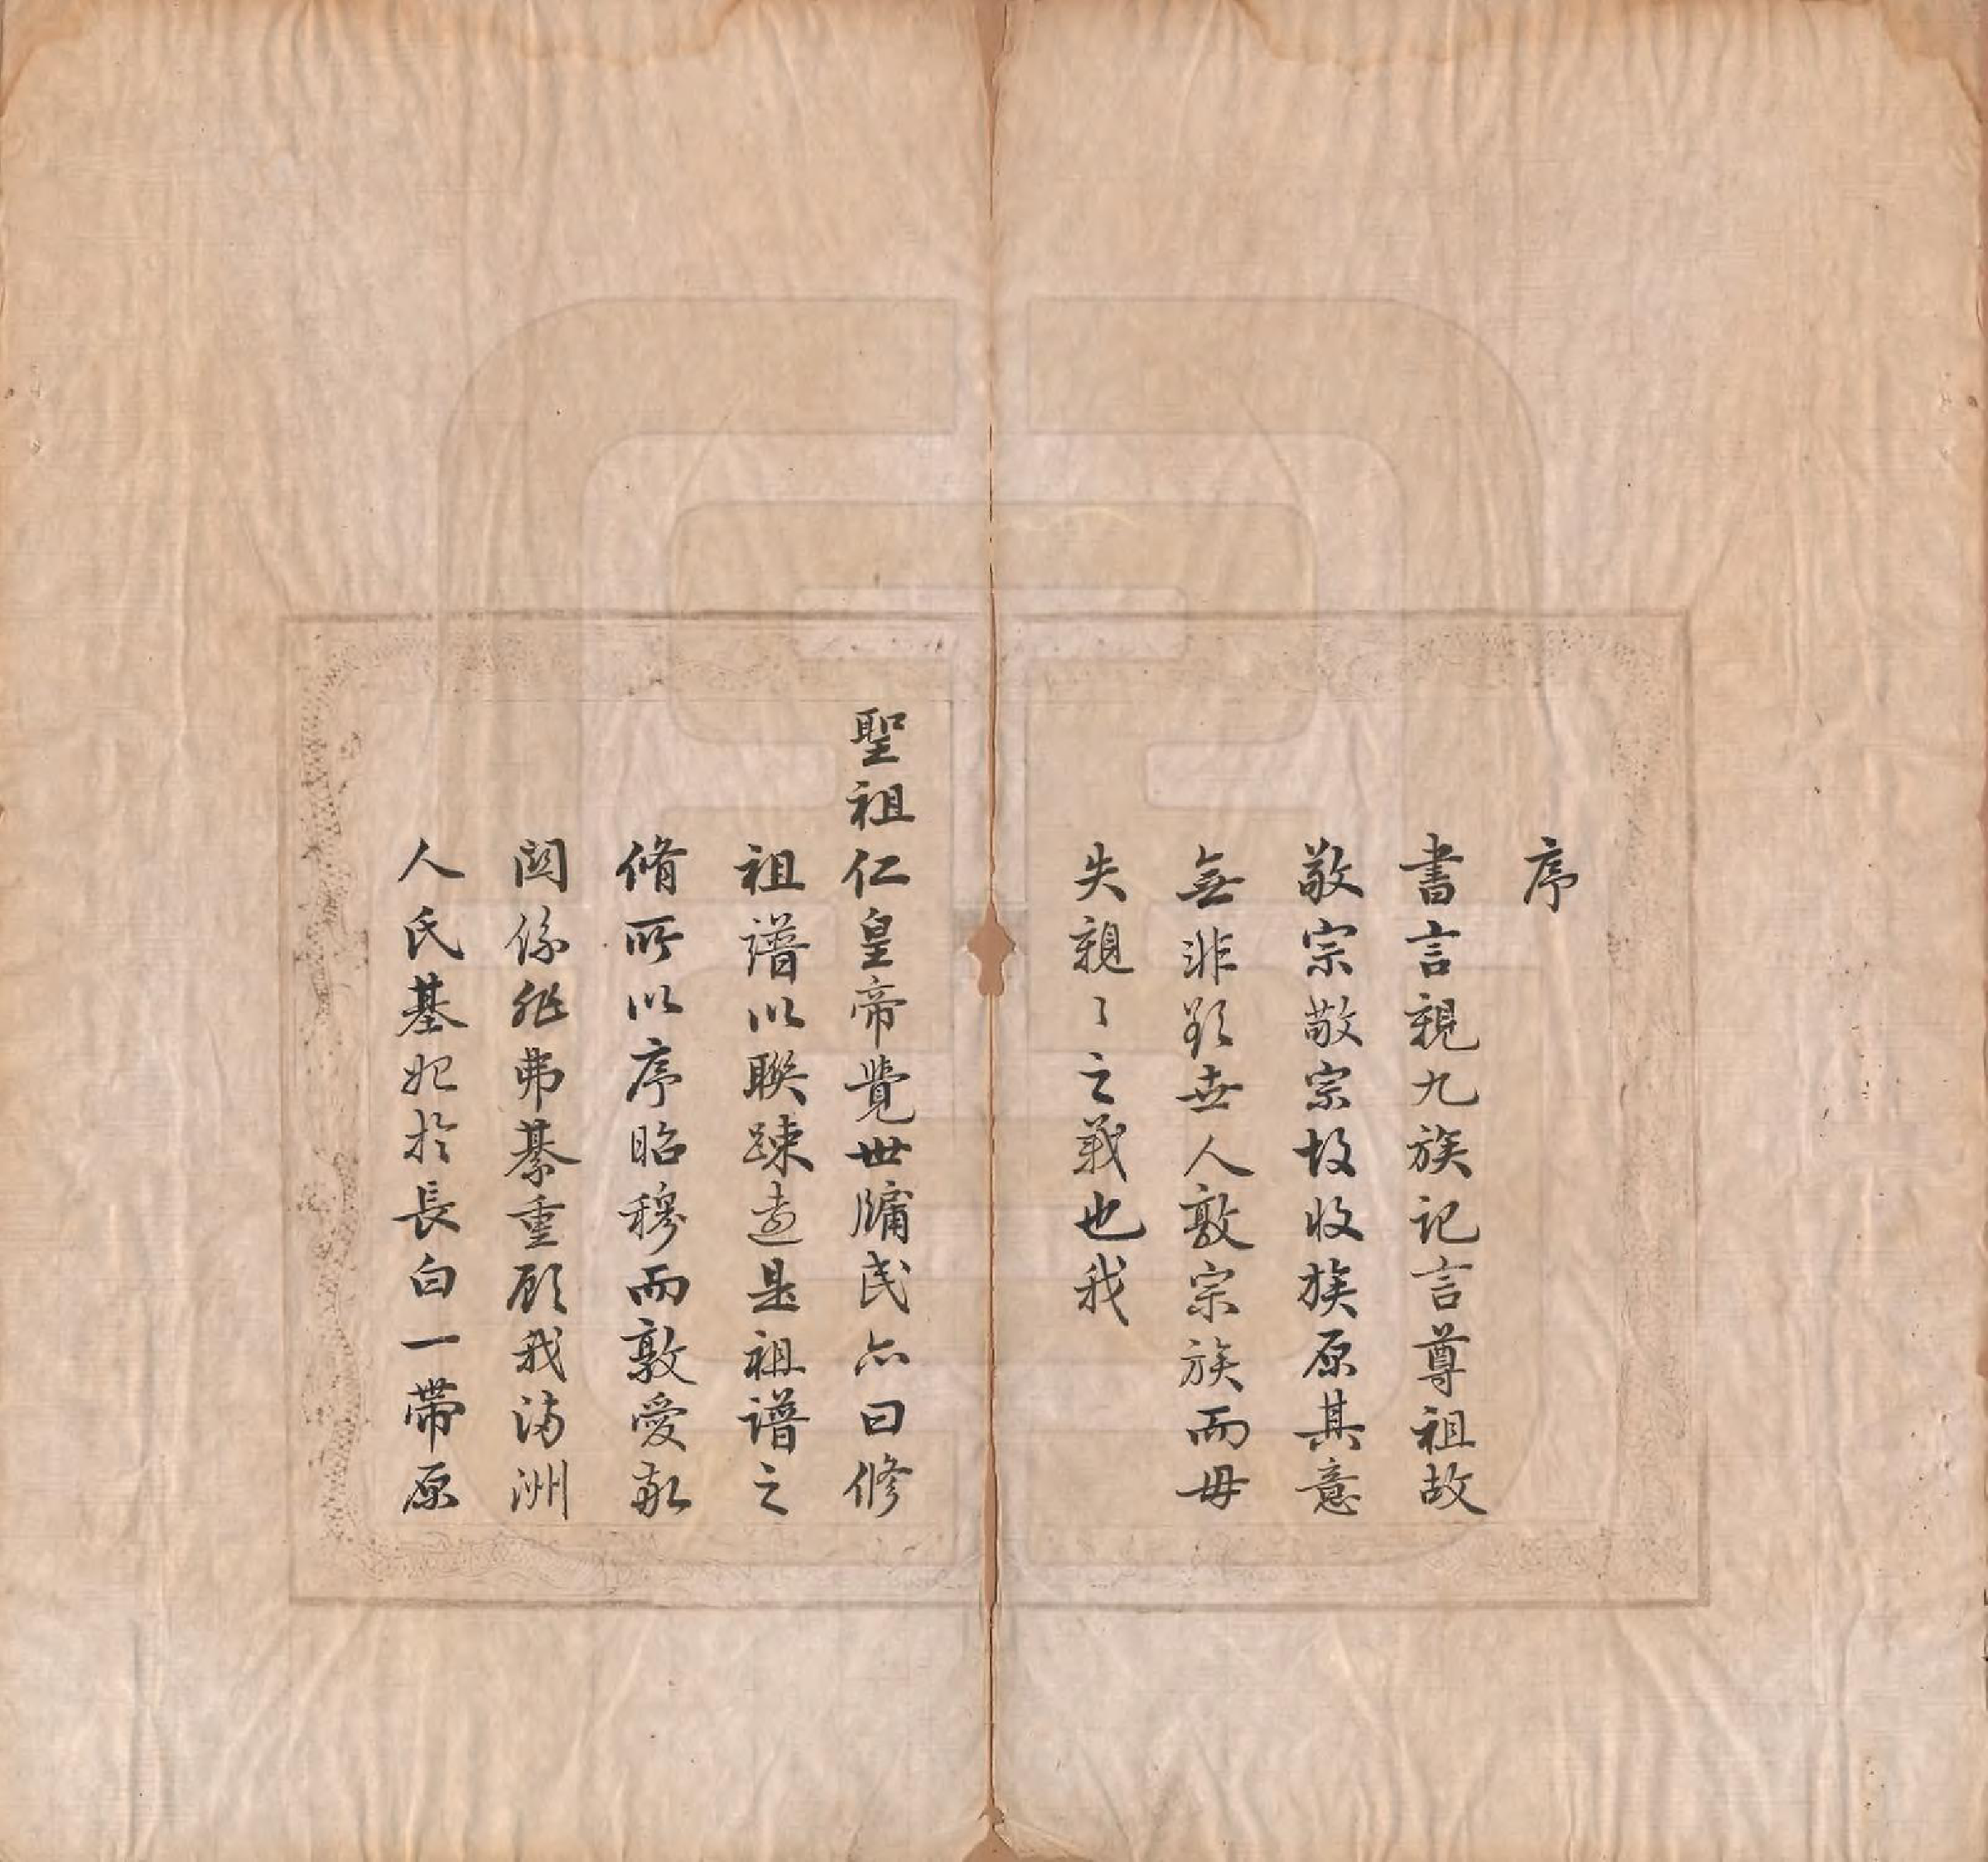 序
書言親九族记言尊祖故
敬宗敬宗故收族原其意
無非欲世人敦宗族而毋
失親〻之義也我
聖祖仁皇帝覺世牖民亦曰修
祖譜以聯踈逺是祖譜之
脩所以序昭穆而敦愛敬
関係能弗綦重顧我满洲
人氏基始於長白一帶原